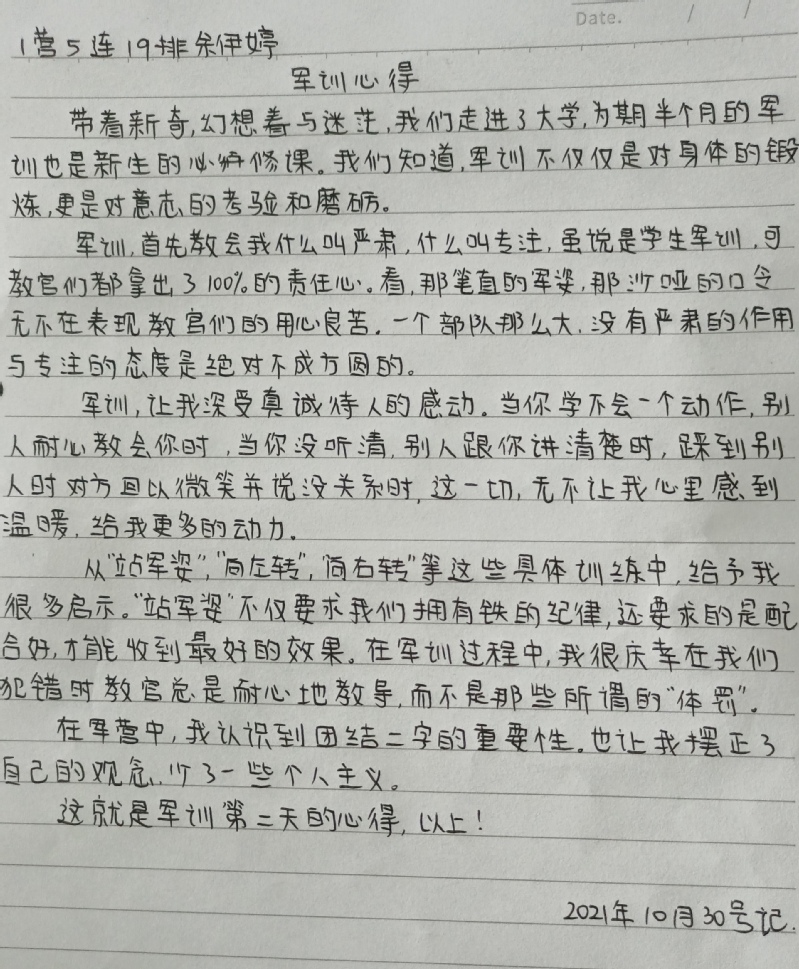 Date. / /
1营5连19排余伊婷
军训心得
带着新奇,幻想着与迷茫,我们走进了大学,为期半个月的军
训也是新生的必修课。我们知道,军训不仅仅是对身体的锻
炼,更是对意志的考验和磨砺。
军训,首先教会我什么叫严肃,什么叫专注,虽说是学生军训,可
教官们都拿出了100%的责任心。看,那笔直的军姿,那沙哑的口令
无不在表现教官们的用心良苦。一个部队那么大,没有严肃的作用
与专注的态度是绝对不成方圆的。
军训,让我深受真诚待人的感动。当你学不会一个动作,别
人耐心教会你时,当你没听清,别人跟你讲清楚时,踩到别
人时对方回以微笑并说没关系时,这一切,无不让我心里感到
温暖,给我更多的动力。
从"站军姿","向左转","向右转"等这些具体训练中,给予我
很多启示。"站军姿"不仅要求我们拥有铁的纪律,还要求的是配
合好,才能收到最好的效果。在军训过程中,我很庆幸在我们
犯错时教官总是耐心地教导,而不是那些所谓的"体罚"。
在军营中,我认识到团结二字的重要性。也让我摆正了
自己的观念,少了一些个人主义。
这就是军训第二天的心得,以上!
2021年10月30号记.